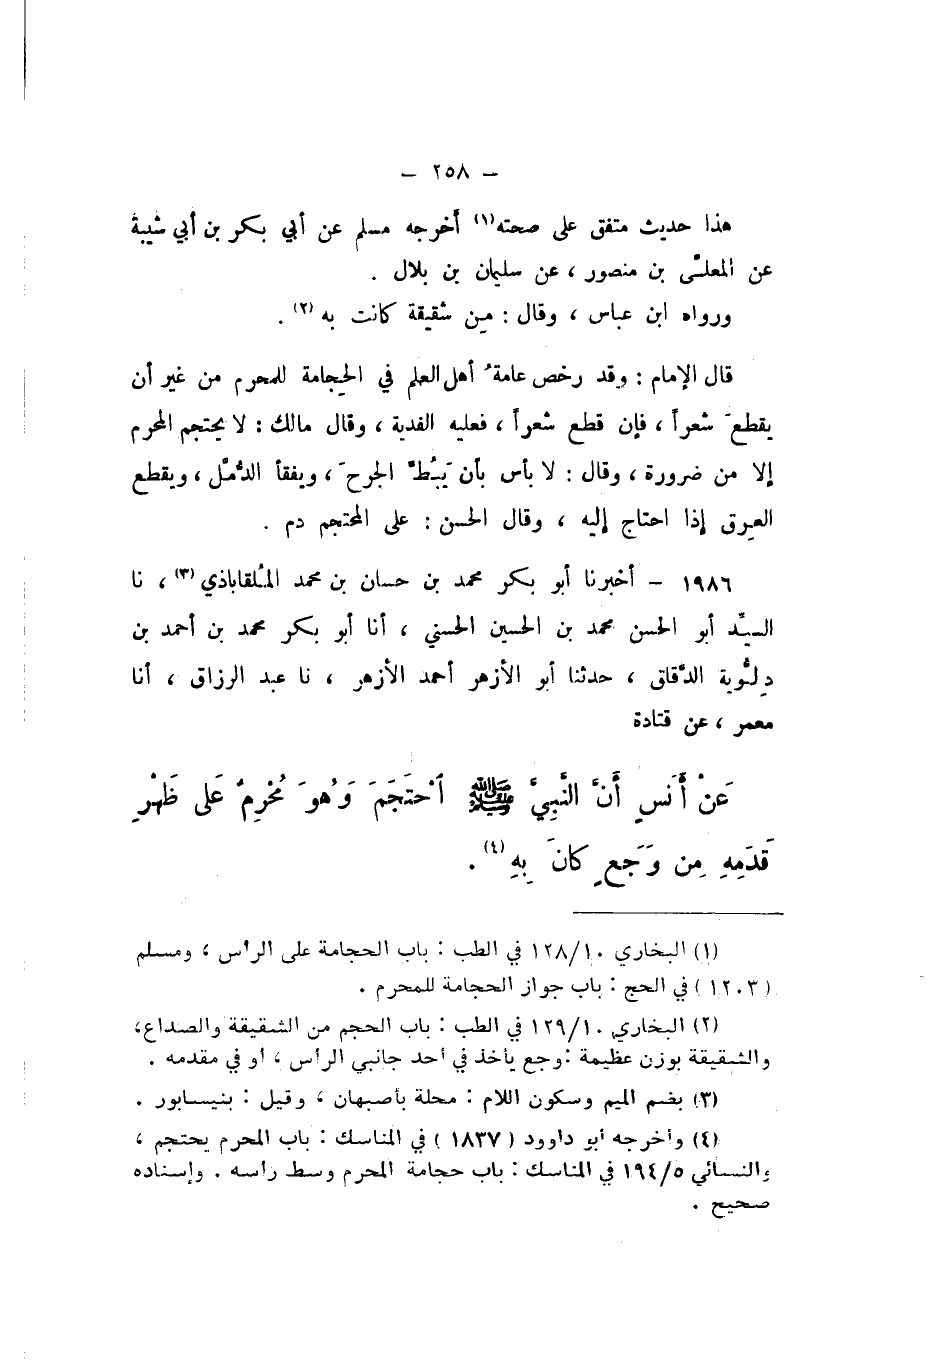 — ٢٥٨ —
هذا حديث متفق على صحته(١) أخرجه مسلم عن أبي بكر بن أبي شيبة
عن المعلَّى بن منصور ، عن سليمان بن بلال .
ورواه ابن عباس ، وقال : مِن شقيقة كانت به (٢) .
قال الإمام : وقد رخص عامةُ أهل العلم في الحِجامة للمحرم من غير أن
يقطعَ شعراً ، فإن قطع شعراً ، فعليه الفدية ، وقال مالك : لا يحتجم المحرم
إلا من ضرورة ، وقال : لا بأس بأن يَبُطَّ الجرحَ ، ويفقأ الدُّمَّل ، ويقطع
العِرق إذا احتاج إليه ، وقال الحسن : على المحتجم دم .
١٩٨٦ – أخبرنا أبو بكر محمد بن حسان بن محمد المُلقاباذي (٣) ، نا
السيِّد أبو الحسن محمد بن الحسين الحسني ، أنا أبو بكر محمد بن أحمد بن
دِلُّوية الدَّقاق ، حدثنا أبو الأزهر أحمد الأزهر ، نا عبد الرزاق ، أنا
معمر ، عن قتادة
عَنْ أَنَسٍ أَنَّ النَّبِيَّ ﷺ اَحْتَجَمَ وَهُوَ مُحْرِمٌ عَلى ظَهْرِ
قَدَمِهِ مِن وَجَعٍ كانَ بِهِ (٤) .
(١) البخاري ١٢٨/١٠ في الطب : باب الحجامة على الرأس ، ومسلم
(١٢٠٣) في الحج : باب جواز الحجامة للمحرم .
(٢) البخاري ١٢٩/١٠ في الطب : باب الحجم من الشقيقة والصداع،
والشقيقة بوزن عظيمة :وجع يأخذ في أحد جانبي الرأس ، أو في مقدمه .
(٣) بضم الميم وسكون اللام : محلة بأصبهان ، وقيل : بنيسابور .
(٤) وأخرجه أبو داوود ( ١٨٣٧ ) في المناسك : باب المحرم يحتجم ،
والنسائي ١٩٤/٥ في المناسك : باب حجامة المحرم وسط رأسه . وإسناده
صحيح .